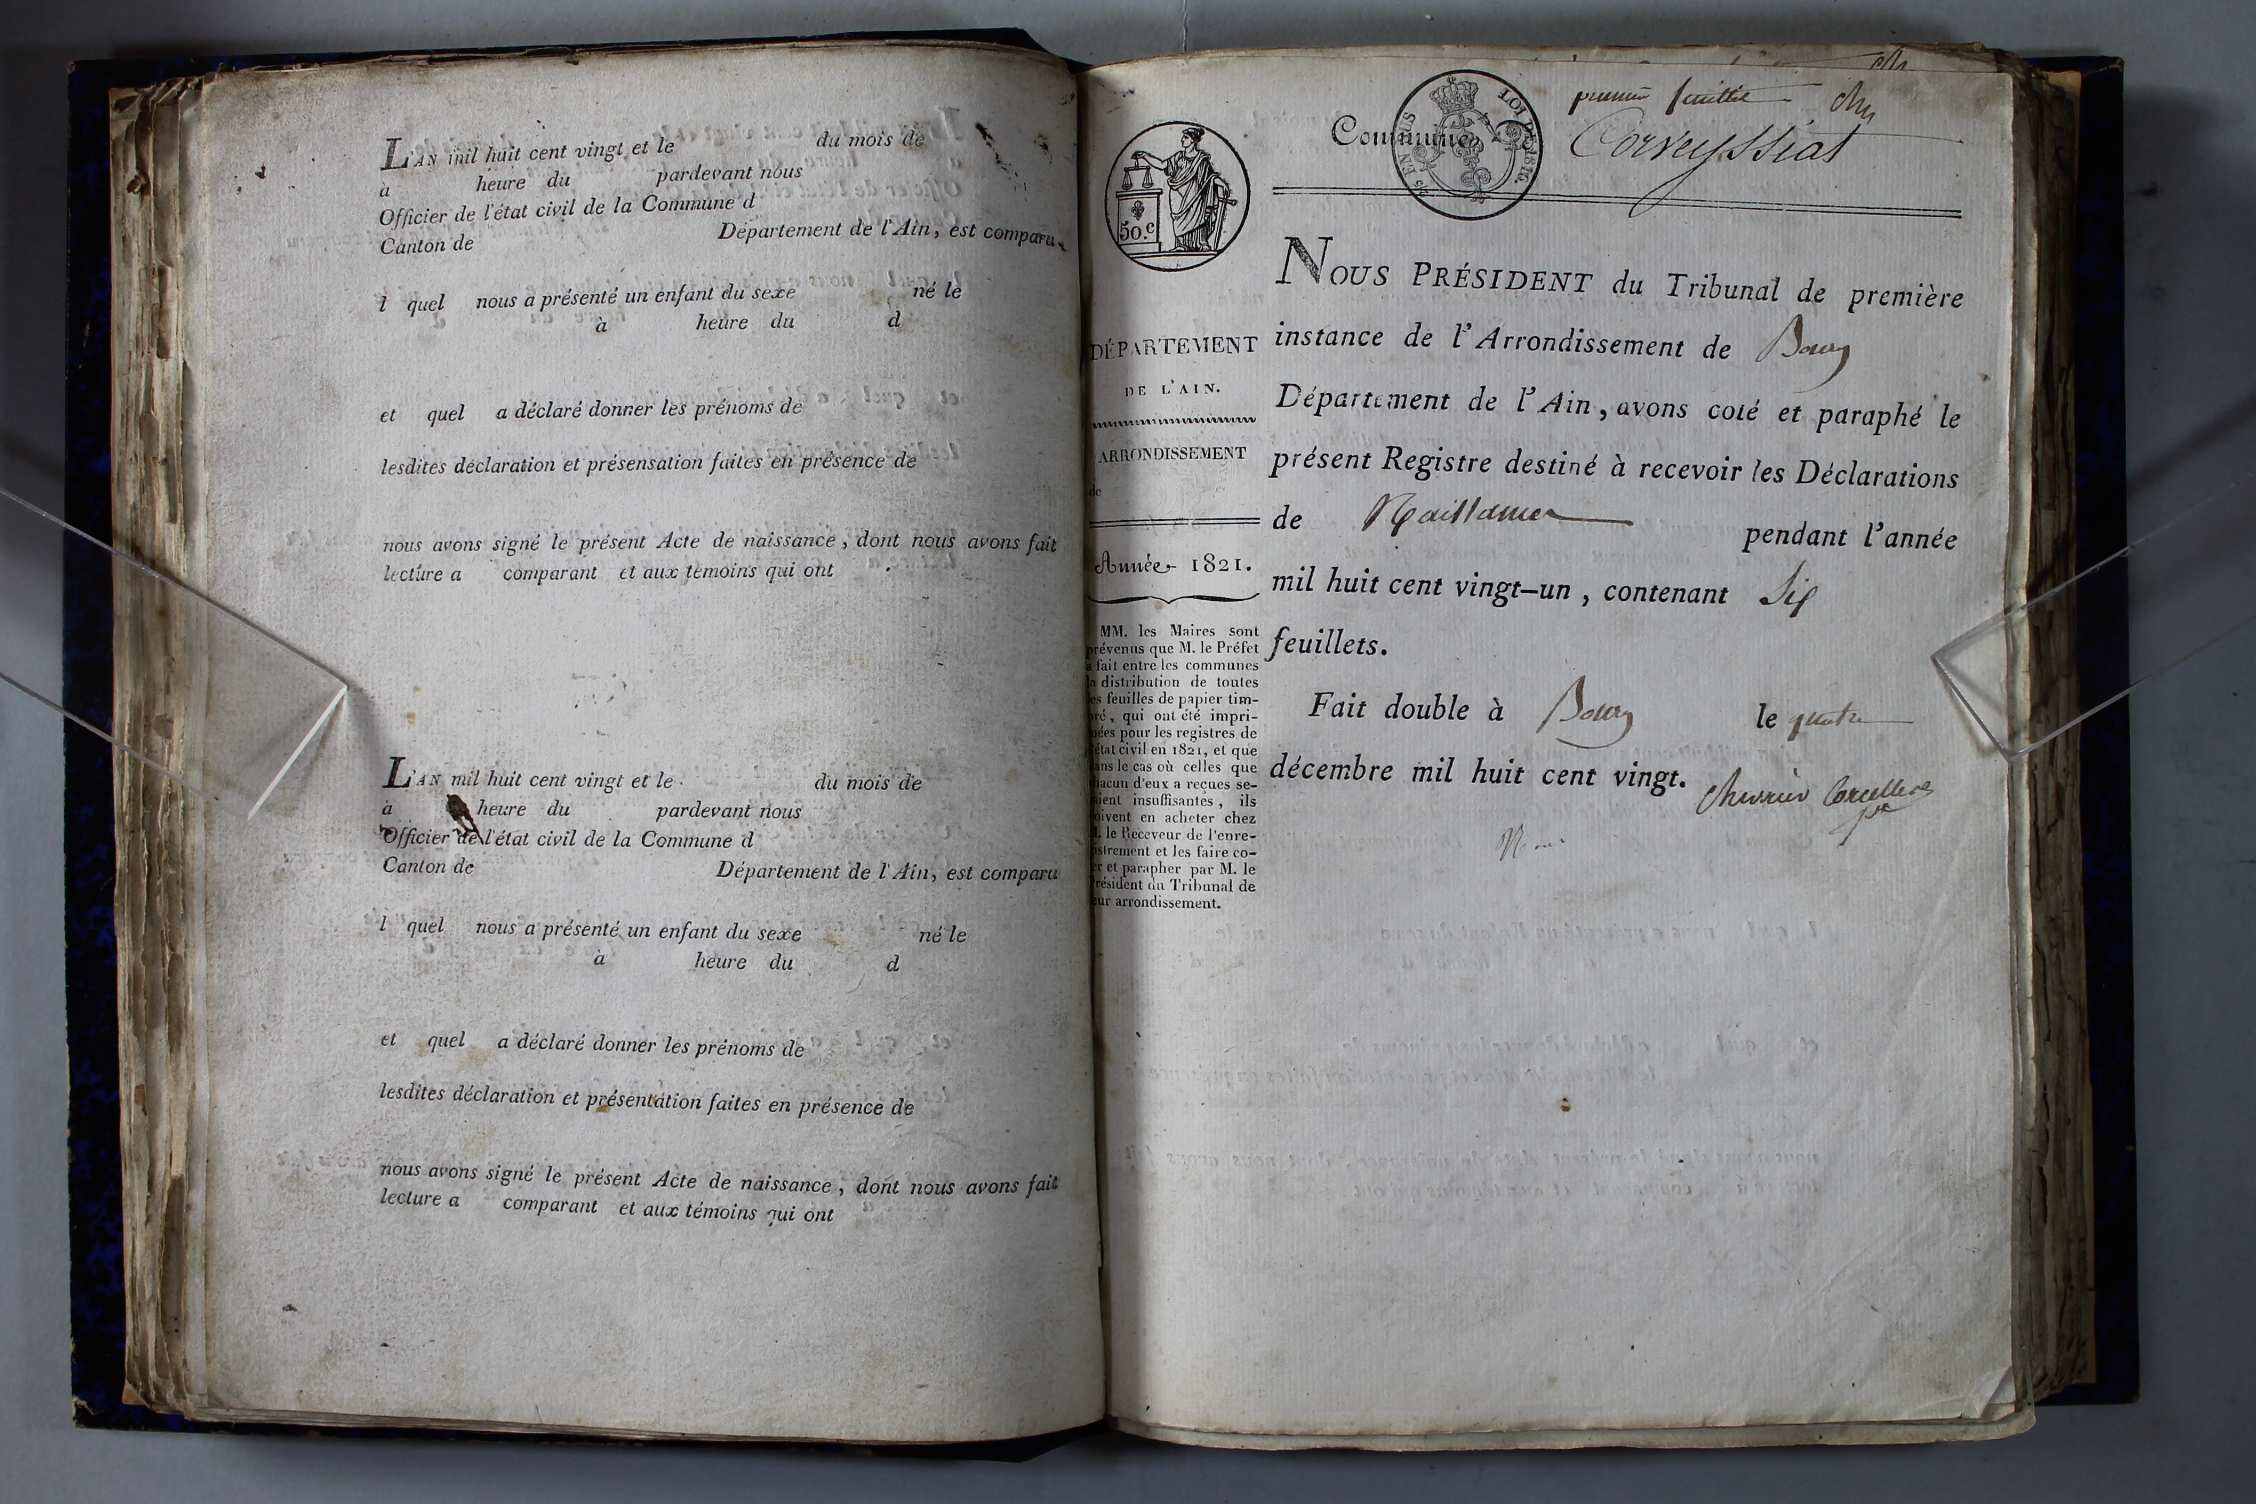 L'AN mil huit cent vingt et le du mois de
a heure du pardevant nous
Officier de l'état civil de la Commune d
Canton de Département de l'Ain, est comparu
l quel nous a présenté un enfant du sexe né le
à heure du d
et quel a déclaré donner les prénoms de
lesdites déclaration et présensation faites en présence de
nous avons signé le présent Acte de naissance, dont nous avons fait
lecture a comparant et aux témoins qui ont
L'AN mil huit cent vingt et le du mois de
a heure du pardevant nous
Officier de l'état civil de la Commune d
Canton de Département de l'Ain, est comparu
l quel nous a présenté un enfant du sexe né le
à heure du d
et quel a déclaré donner les prénoms de
lesdites déclaration et présentation faites en présence de
nous avons signé le présent Acte de naissance, dont nous avons fait
lecture a comparant et aux témoins qui ont
50.c
DÉPARTEMENT
DE L'AIN.
ARRONDISSEMENT
de
Année 1821.
MM. les Maires sont
prévenus que M. le Préfet
a fait entre les communes
la distribution de toutes
les feuilles de papier tim-
bré, qui ont été impri-
mées pour les registres de
l'état civil en 1821, et que
dans le cas où celles que
chacun d'eux a reçues se-
roient insuffisantes, ils
doivent en acheter chez
M. le Receveur de l'enre-
gistrement et les faire co-
ter et parapher par M. le
Président du Tribunal de
leur arrondissement.
premier feuillet
Commune Corveyssiat
LOI DE 1816.
EN SUS
NOUS PRÉSIDENT du Tribunal de première
instance de l'Arrondissement de Bourg
Département de l'Ain, avons coté et paraphé le
présent Registre destiné à recevoir les Déclarations
de Naissance pendant l'année
mil huit cent vingt-un, contenant Six
feuillets.
Fait double à Bourg le quatre
décembre mil huit cent vingt.
Chevrier Corcelles